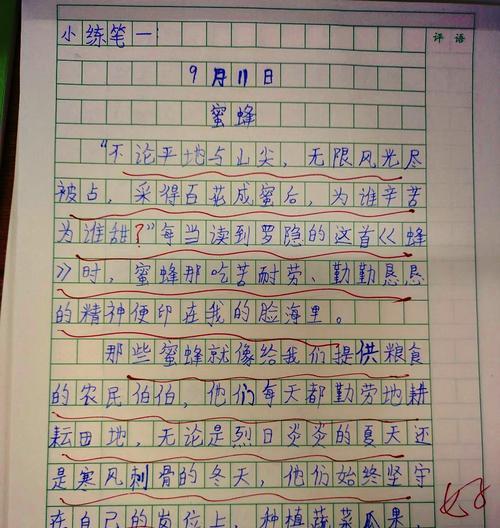 评 语
小练笔一:
9月11日
蜜蜂
“不论平地与山尖，无限风光尽
被占，采得百花成蜜后，为谁辛苦
为谁甜？”每当读到罗隐的这首《蜂
》时，蜜蜂那吃苦耐劳、勤勤恳恳
的精神便印在我的脸海里。
那些蜜蜂就像给我们提供粮食
的农民伯伯，他们每天都勤劳地耕
耘田地，无论是烈日炎炎的夏天还
是寒风刺骨的冬天，他们始终坚守
在自己的岗位上，种植蔬菜瓜果，
好